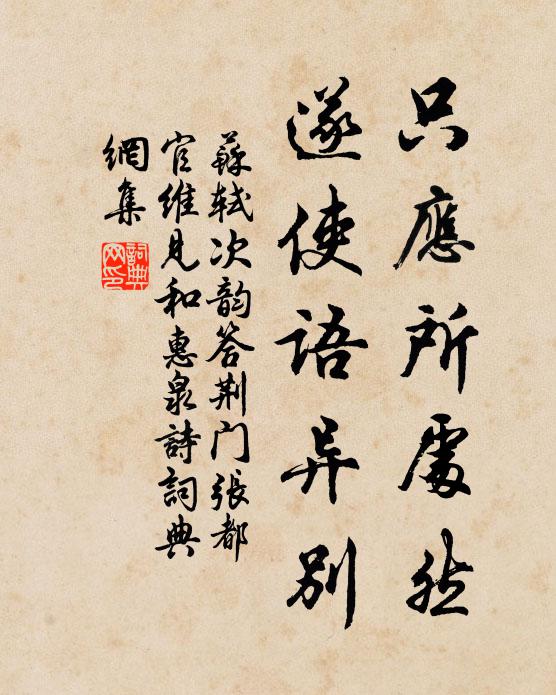 只應所處然
遂使語异别
蘇軾次韵答荆门張都
官維見和惠泉詩詞典
網集
詞典
网印